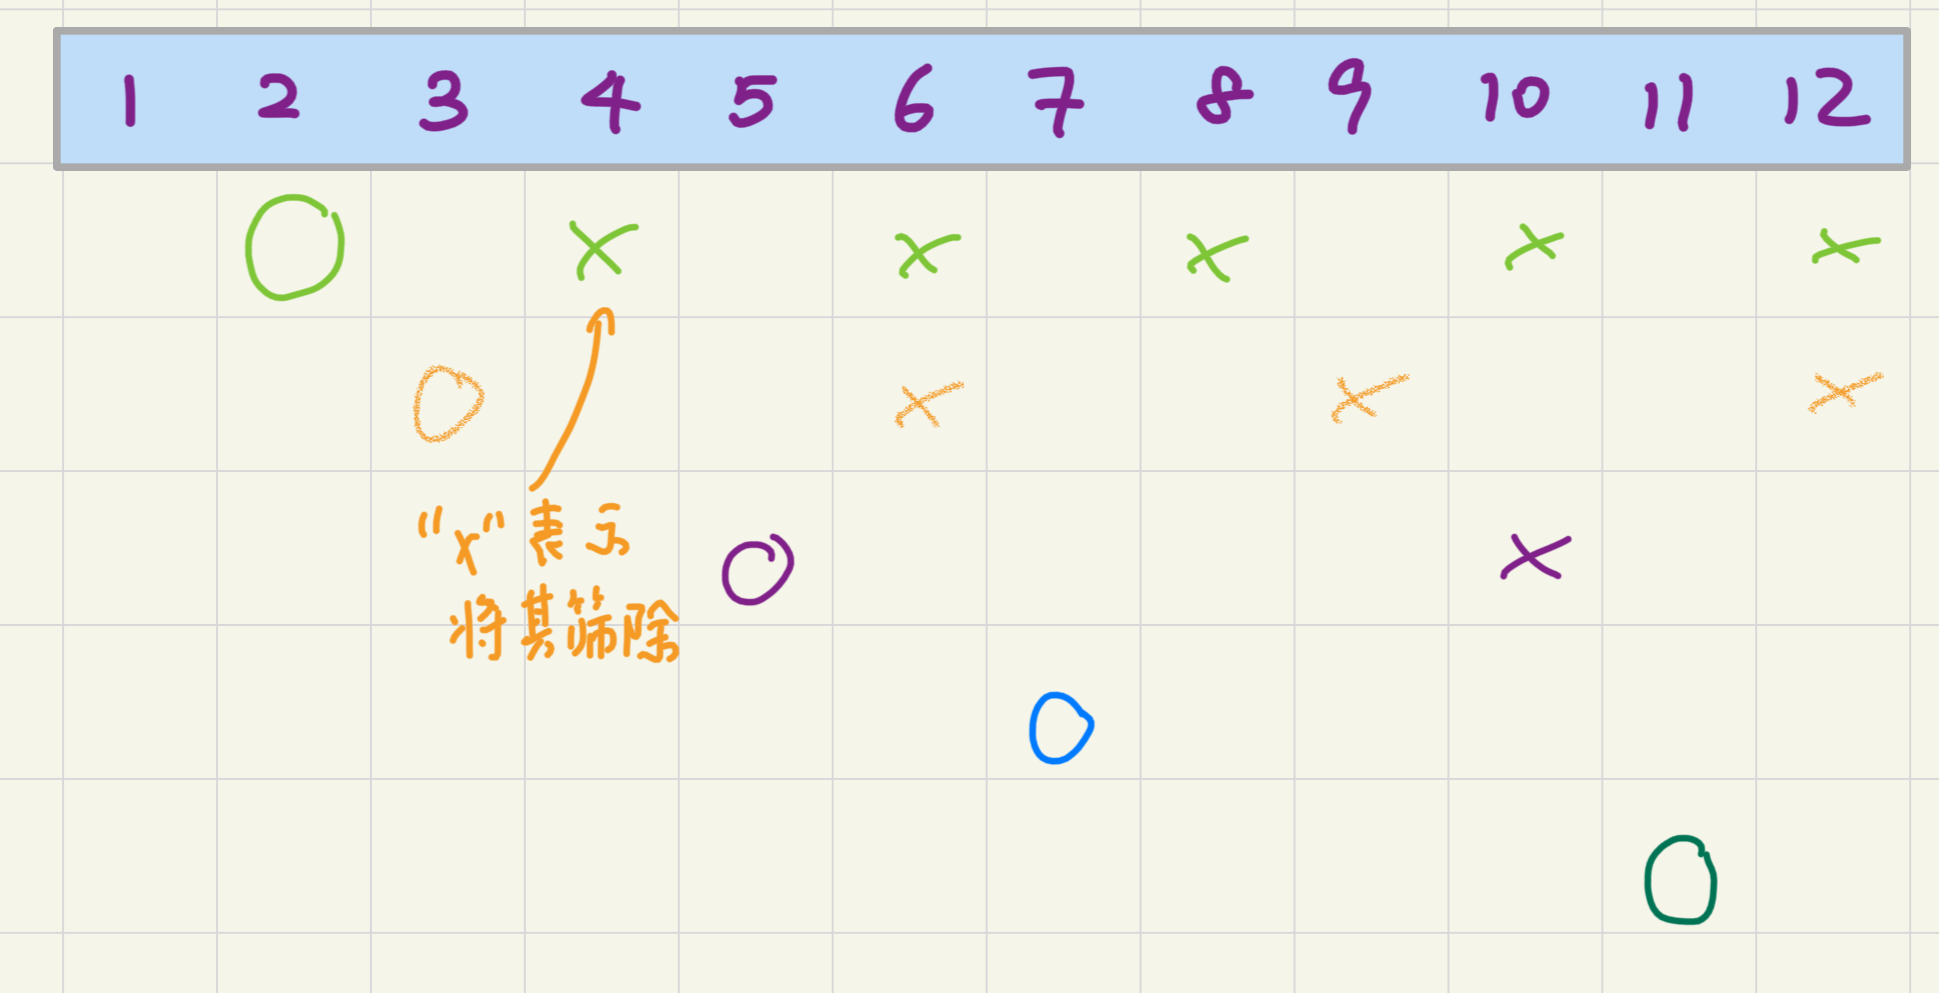 1 2 3 4 5 6 7 8 9 10 11 12
"x"表示
将其筛除